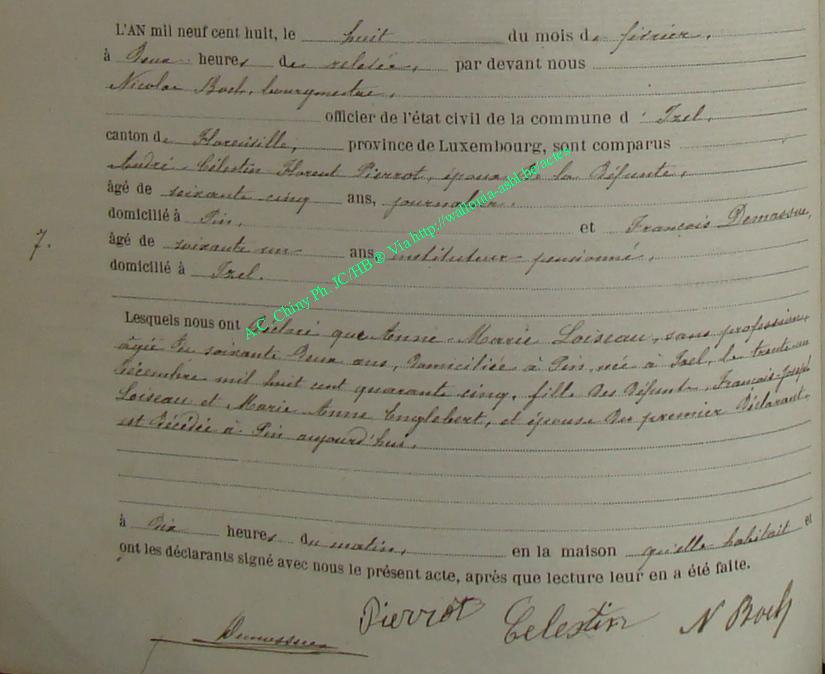 L'AN mil neuf cent huit, le huit du mois de février,
à Deux heures de relevée, par devant nous
Nicolas Boch, bourgmestre,
officier de l'état civil de la commune d'Izel,
canton de Florenville, province de Luxembourg, sont comparus
André Célestin Florent Pierrot, époux de la Défunte,
âgé de soixante cinq ans, journalier,
domicilié à Pin, et François Demasssue,
7. âgé de soixante un ans, instituteur pensionné,
domicilié à Izel.
A.C. Chiny Ph. JC/HB ® Via http://wallonia-asbl.be/actes
Lesquels nous ont Déclaré que Anne Marie Loiseau, sans profession,
âgée de soixante Deux ans, Domiciliée à Pin, née à Izel, le trente un
Décembre mil huit cent quarante cinq, fille des Défunts, François-Joseph
Loiseau et Marie Anne Englebert, et épouse du premier Déclarant,
est Décédée à Pin aujourd'hui,
à Dix heures du matin, en la maison qu'elle habitait et
ont les déclarants signé avec nous le présent acte, après que lecture leur en a été faite.
Pierrot Celestin N Boch